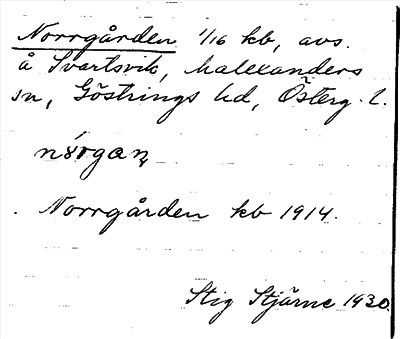 Norrgården 1/16 kb, avs.
å Svartsvik, Malexanders
sn, Göstrings hd, Österg. l.
Norrgården kb 1914.
Stig Stjärne 1930.